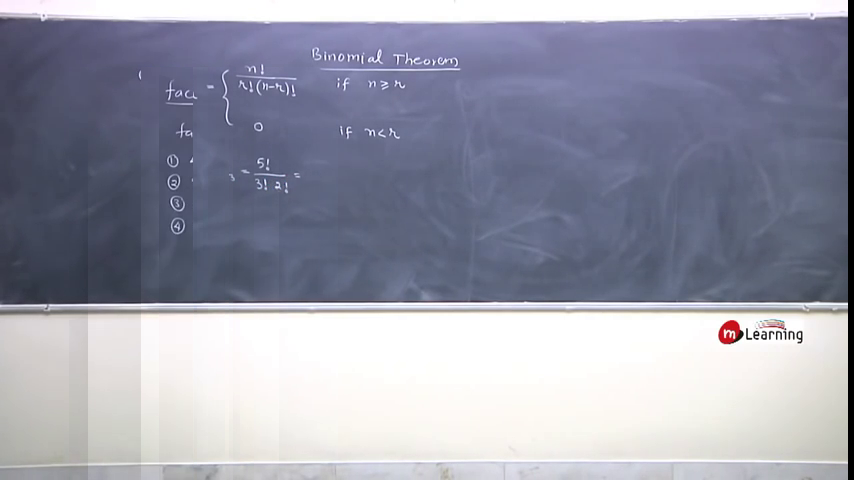 Binomial Theorem
= { n! / r!(n-r)! if n ≥ r
0 if n < r
①
② 3 = 5! / 3! 2! =
③
④
m Learning